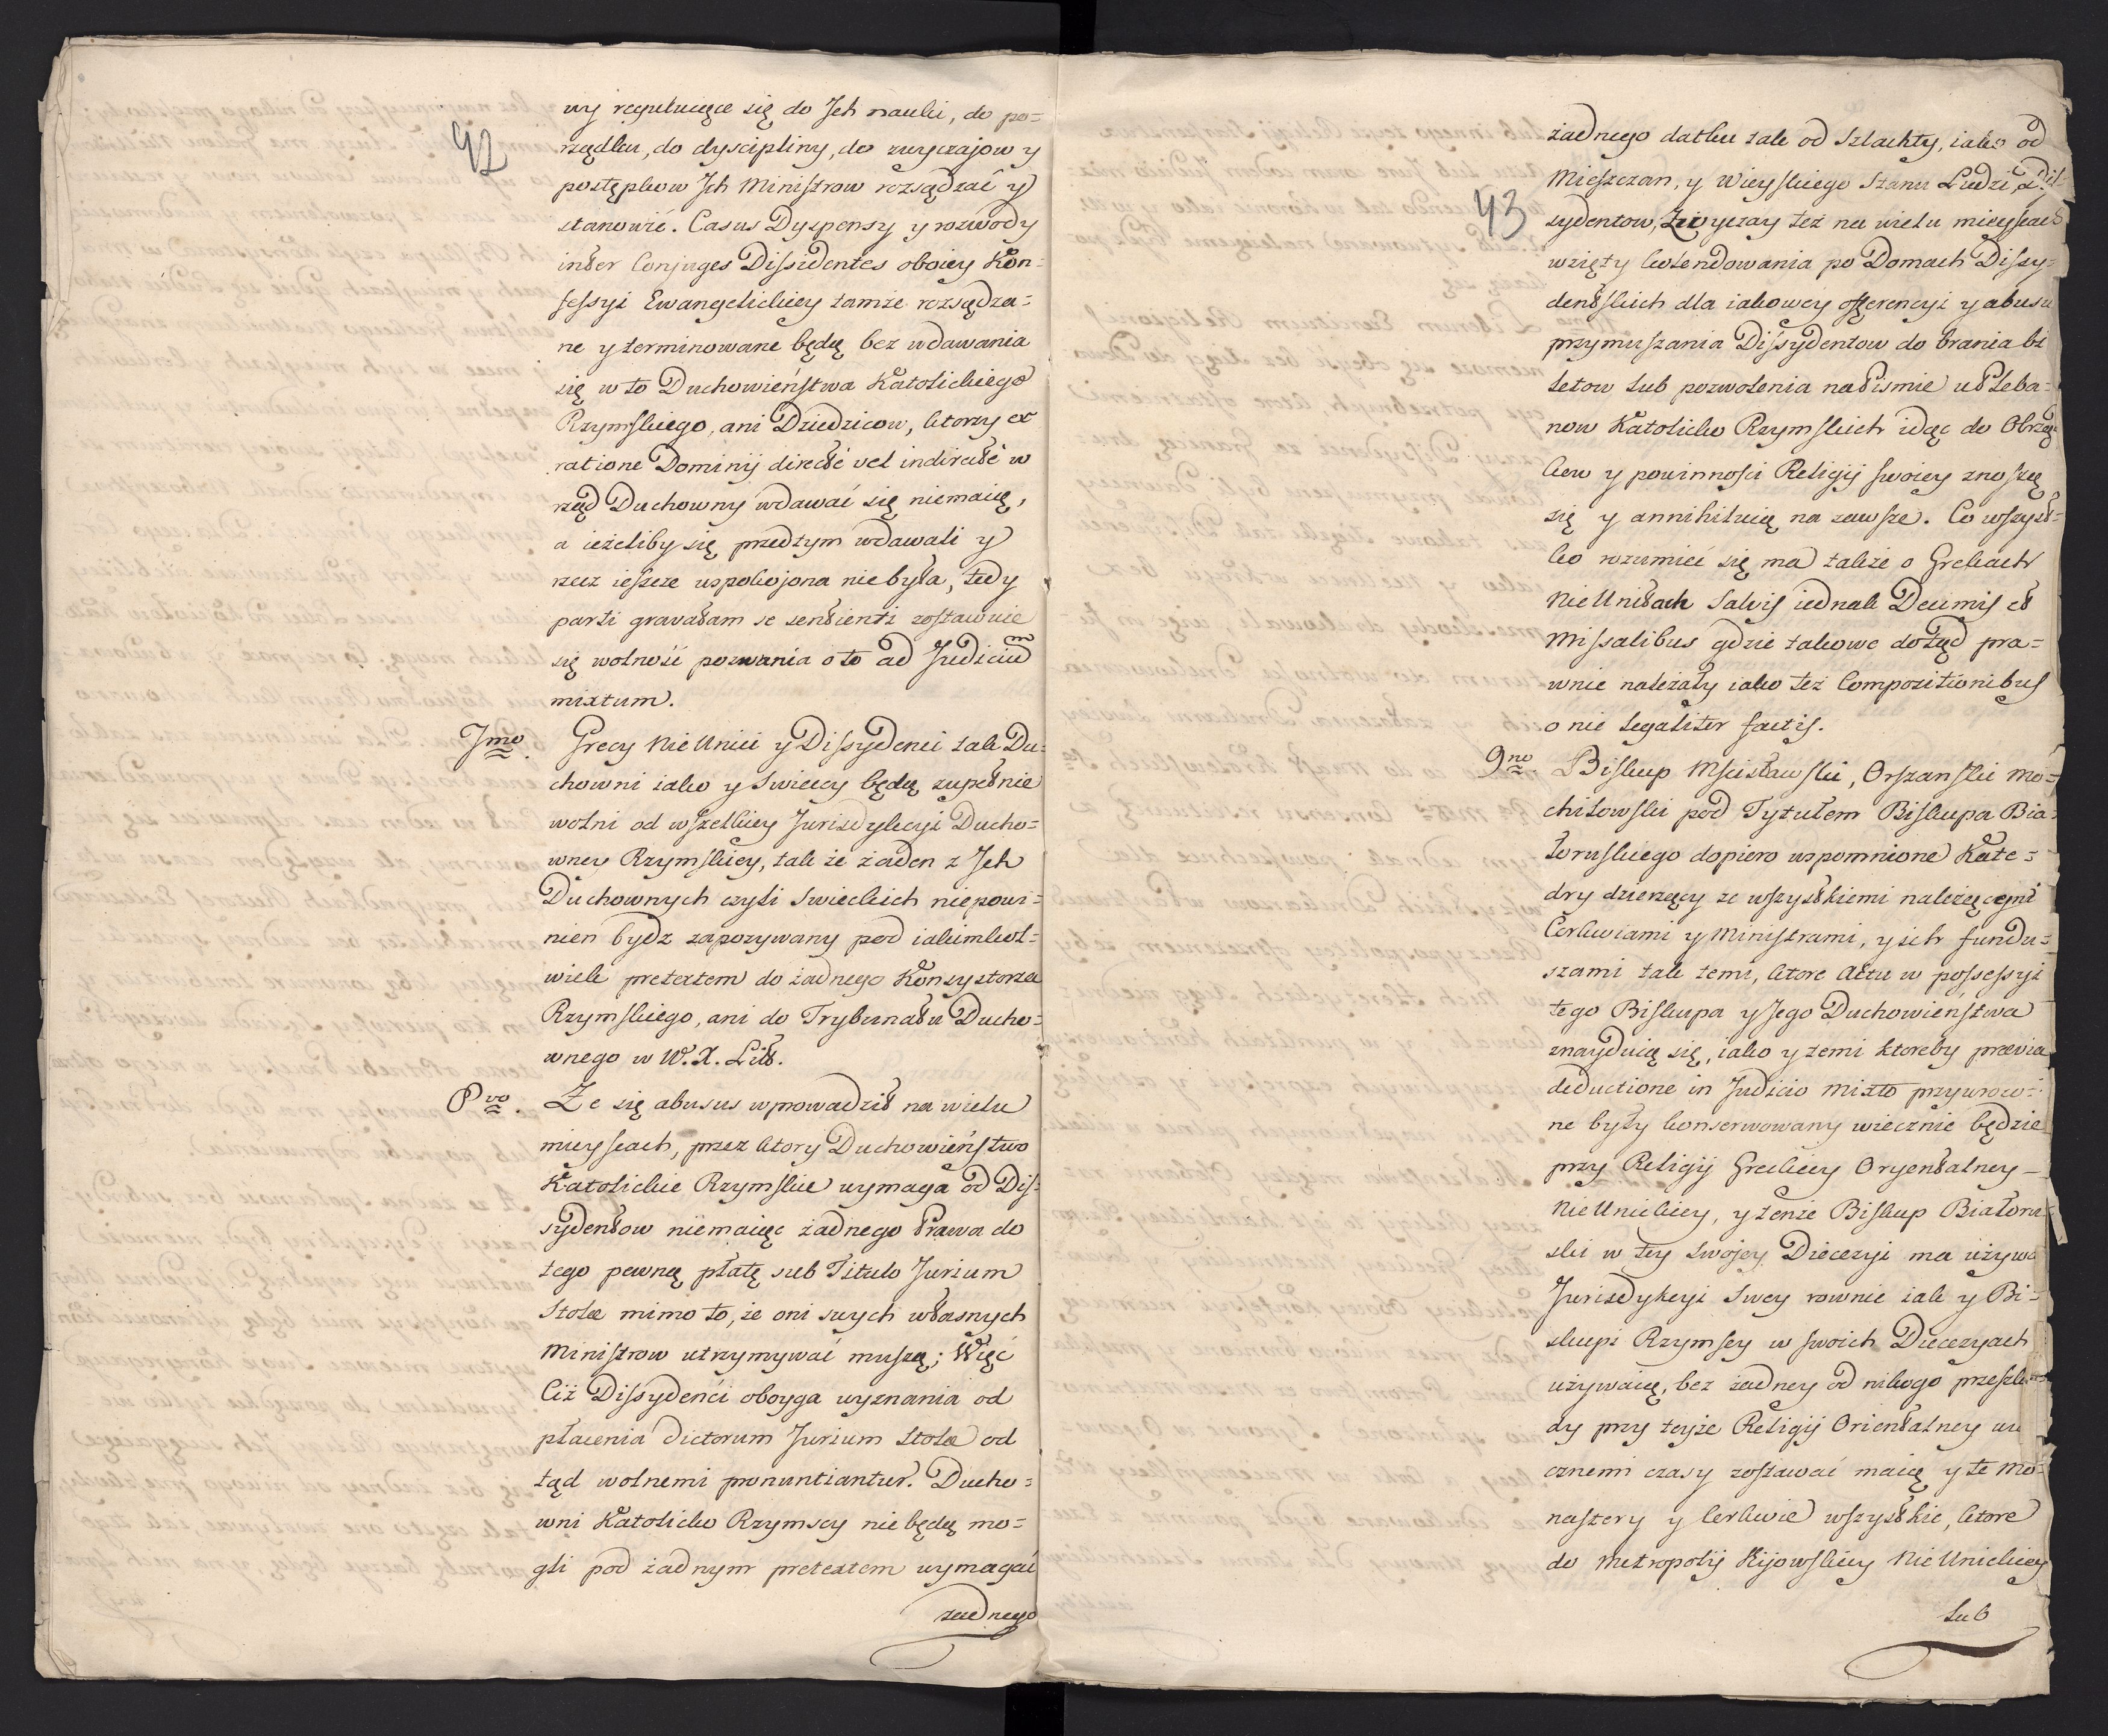 42
wy regulujące się do Jch nauki, do po=
rządku, do dyscipliny, do zwyczajow y
postępkow Jch Ministrow rozsądzać y
stanowić. Casus Dyspensy y rozwody
inter Conjuges Dissidentes oboiey Kon=
fessyi Ewangelickiey tamże rozsądza=
ne y terminowane będą bez wdawania
się w to Duchowieństwa Katolickiego
Rzymskiego, ani Dziedzicow, ktorzy ex
ratione Dominij directé vel indirecté w
rząd Duchowny wdawać się niemaią,
a ieżeliby się przedtym wdawali y
rzecz ieszcze uspokojona niebyła, tedy
parti gravatam se sentienti zostawuie
się wolność pozwania o to ad Judicium
mixtum.
7mo. Grecy Nie Unici y Dissydenci tak Du=
chowni iako y Swieccy będą zupełnie
wolni od wszelkiey Jurisdykcyi Ducho=
wney Rzymskiey, tak że żaden z Jch
Duchownych czyli Swieckich niepowi=
nien bydz zapozywany pod iakimkol=
wiek pretextem do żadnego Konsystorza
Rzymskiego, ani do Trybunału Ducho=
wnego w W. X. Litt.
8vo. Że się abusus wprowadził na wielu
mieyscach, przez ktory Duchowieństwo
Katolickie Rzymskie wymaga od Dis=
sydentow niemaiąc żadnego Prawa do
tego pewną płatę sub Titulo Jurium
Stolæ mimo to, że oni swych własnych
Ministrow utrzymywać muszą; Więc
Ciż Dissydenci oboyga wyznania od
płacenia dictorum Jurium Stolæ od
tąd wolnemi pronuntiantur. Ducho=
wni Katolicko Rzymscy niebędą mo=
gli pod żadnym pretextem wymagać
żadnego
43
żadnego datku tak od Szlachty, iako od
Mieszczan, y Wieyskiego Stanu Ludzi Dis=
sydentow, Zwyczay też na wielu mieyscach
wzięty kolendowania po Domach Dissy=
dentskich dla iakowey offerencyi y abusu
przymuszania Dissydentow do brania bi
letow lub pozwolenia na Pismie u Pleba=
now Katolicko Rzymskich idąc do Obrząd
kow y powinności Religij swoiey znoszą
się y annihiluią na zawsze. Co wszyst=
ko rozumieć się ma także o Grekach
Nie Unitach Salvis iednak Decimis et
Missalibus gdzie takowe dotąd pra=
wnie należały iako też Compositionibus
o nie legaliter factis.
9no. Biskup Mscisławski, Orszanski Mo=
chilowski pod Tytułem Biskupa Bia=
łoruskiego dopiero wspomnione Kate=
dry dzierzący ze wszystkiemi należącemi
Cerkwiami y Ministrami, y ich fundu=
szami tak temi, ktore Actu w possessyi
tego Biskupa y Jego Duchowieństwa
znayduią się, iako y temi ktoreby prævia
deductione in Judicio Mixto przywroco=
ne były konserwowany wiecznie będzie
przy Religij Greckiey Oryentalney
Nie Unickiey, y tenże Biskup Białoru
ski w tey swojey Diecezyi ma używa
Jurisdykcyi Swey rownie iak y Bi=
skupi Rzymscy w swoich Diecezyach
używaią, bez żadney od nikogo przeszko=
dy przy teyże Religij Orientalney wi
cznemi czasy zostawać maią y te Mo=
nastery y Cerkwie wszystkie, ktore
do Metropolij Kijowskiey Nie Unickiey
lub